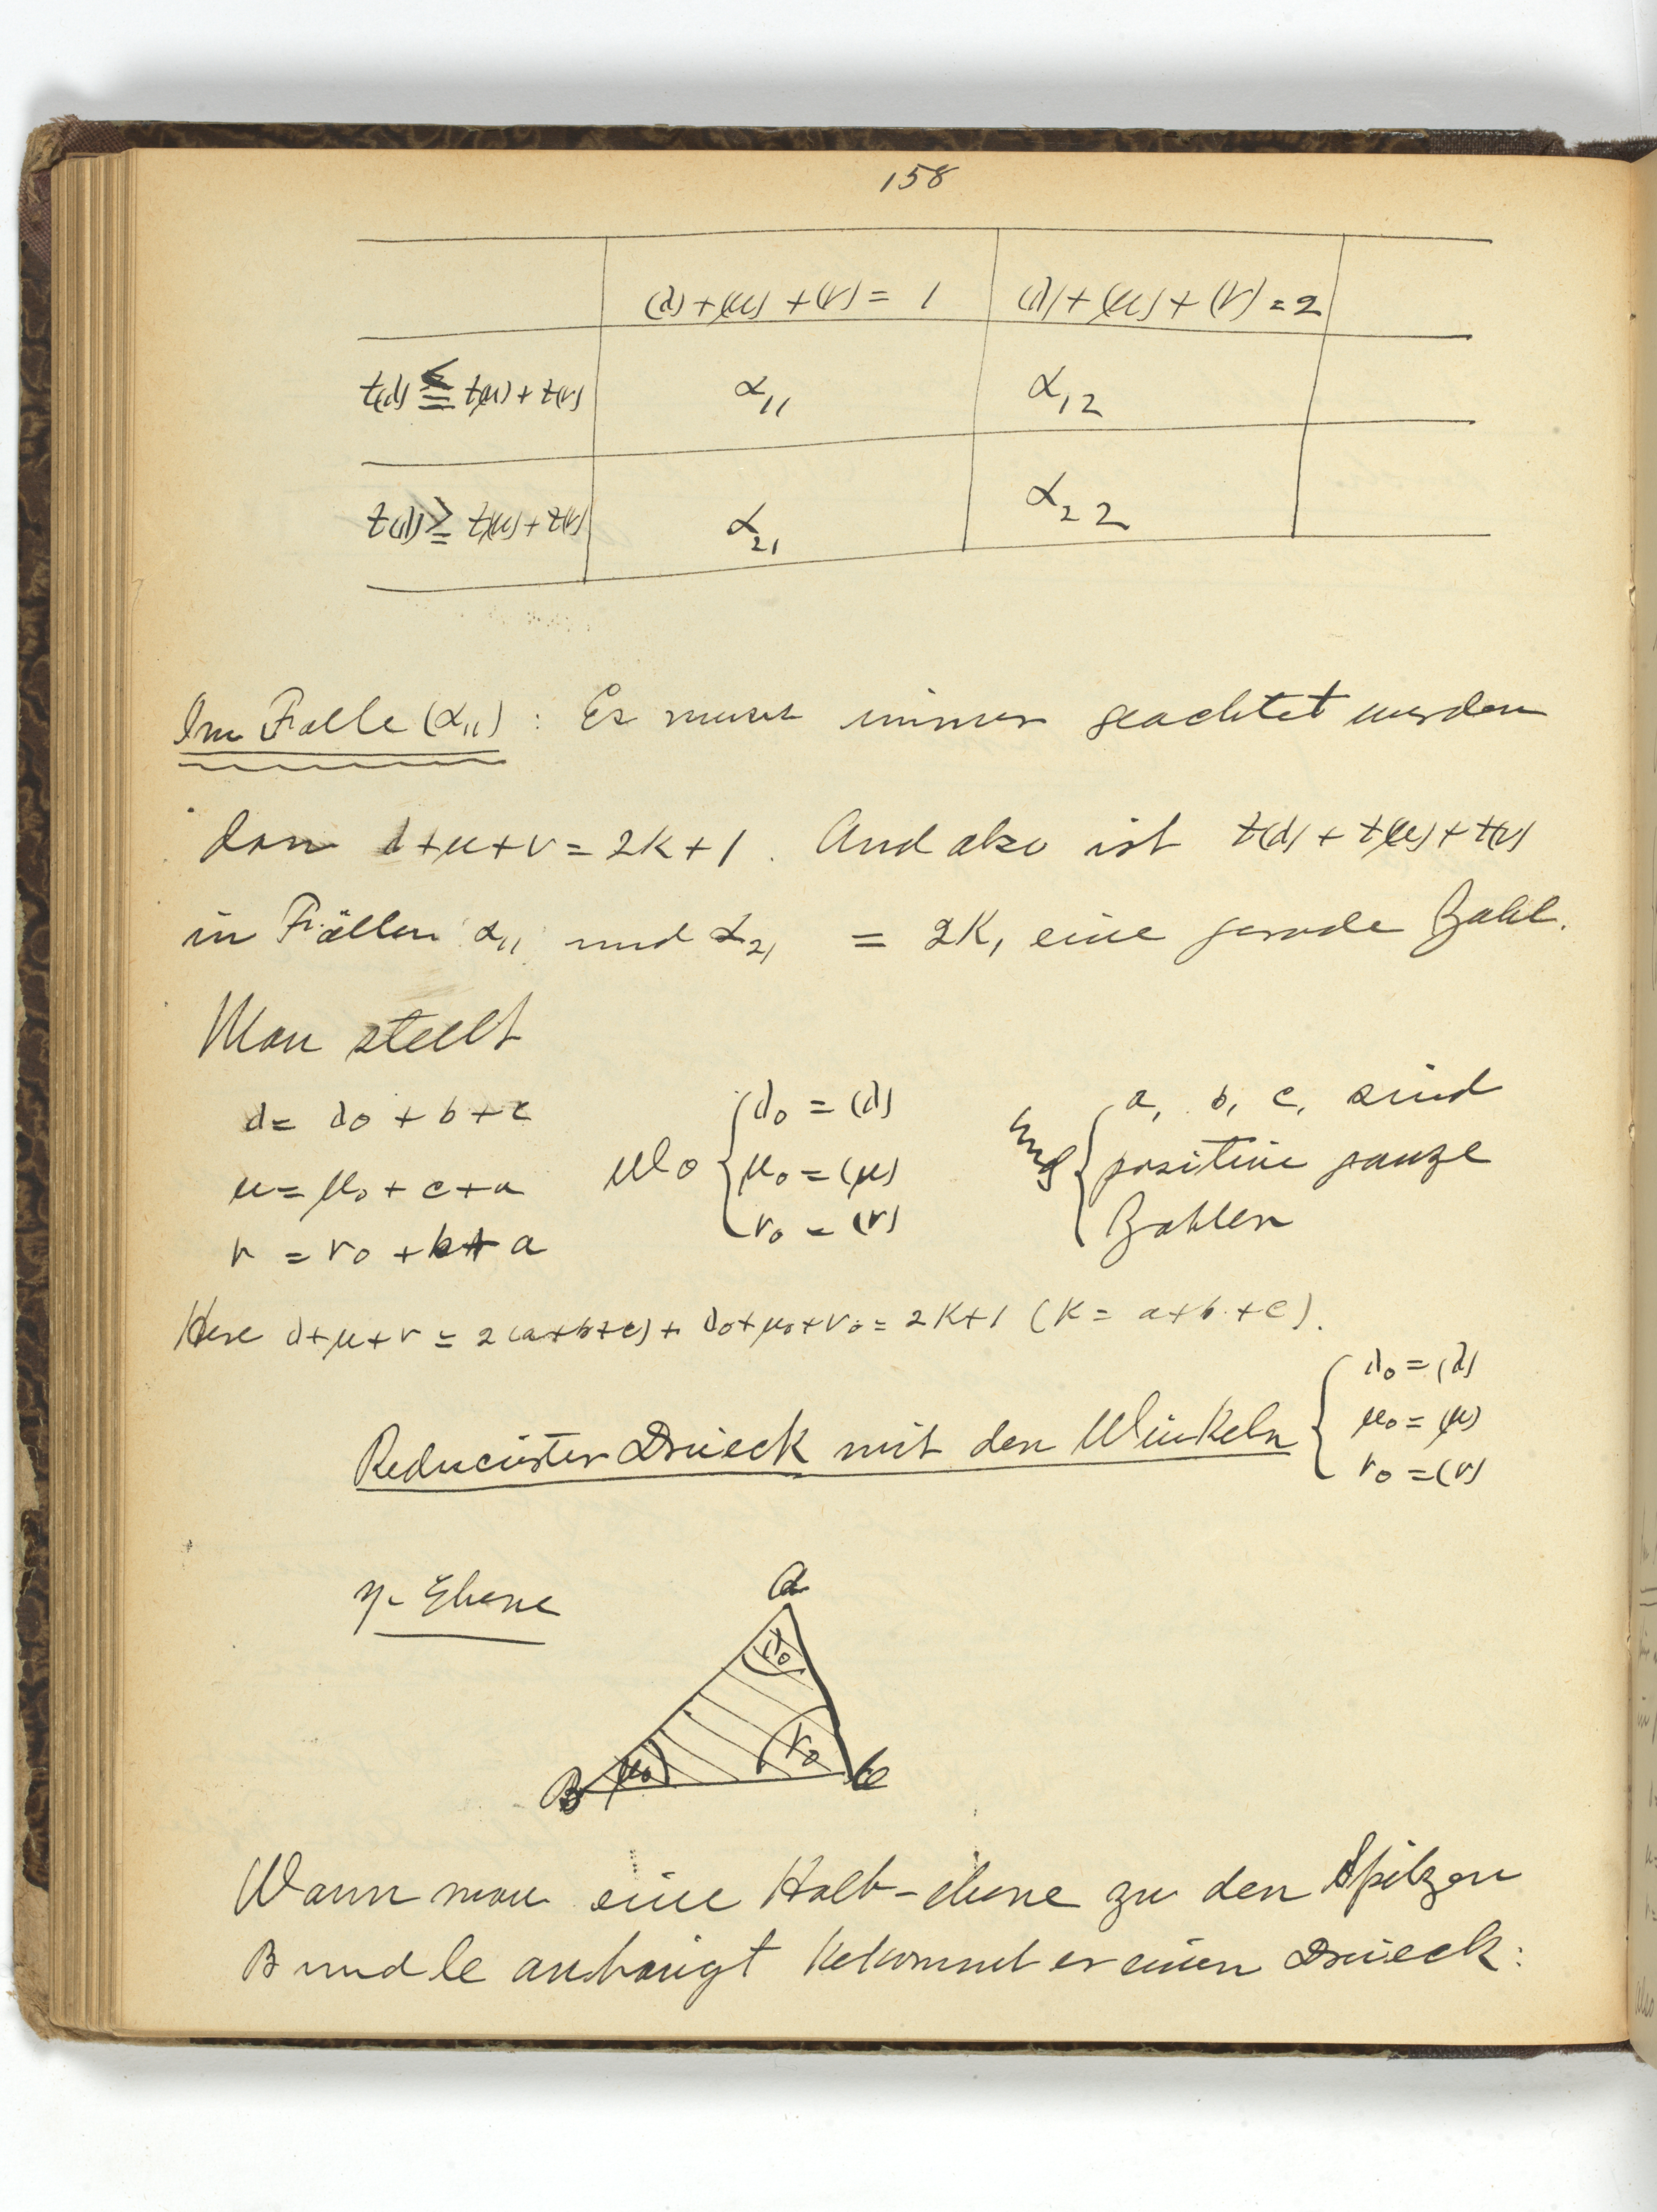 158
(λ)+(μ)+(ν) = 1 (λ)+(μ)+(ν) = 2
t(λ) ≦ t(μ) + t(ν) α₁₁ α₁₂
t(λ) ≧ t(μ) + t(ν) α₂₁ α₂₂
Im Falle (α₁₁) : Es muss immer geachtet werden
dan λ+μ+ν = 2k+1. And also ist t(λ) + t(μ) + t(ν)
in Fällen α₁₁ und α₂₁ = 2K, eine gerade Zahl.
Man stellt
λ = λ₀ + b + c
μ = μ₀ + c + a
ν = ν₀ + b + a
wo { λ₀ = (λ)
μ₀ = (μ)
ν₀ = (ν)
und { a, b, c, sind
positive ganze
Zahlen
Here λ+μ+ν = 2(a+b+c) + λ₀+μ₀+ν₀ = 2K+1 (K = a+b+c).
Reducirter Drieck mit den Winkeln { λ₀ = (λ)
μ₀ = (μ)
ν₀ = (ν)
η-Ebene
a
λ₀
μ₀
ν₀
B
C
Wann man eine Halb-ebene zu den Spitzen
B und C anhängt bekommt er einen Drieck: